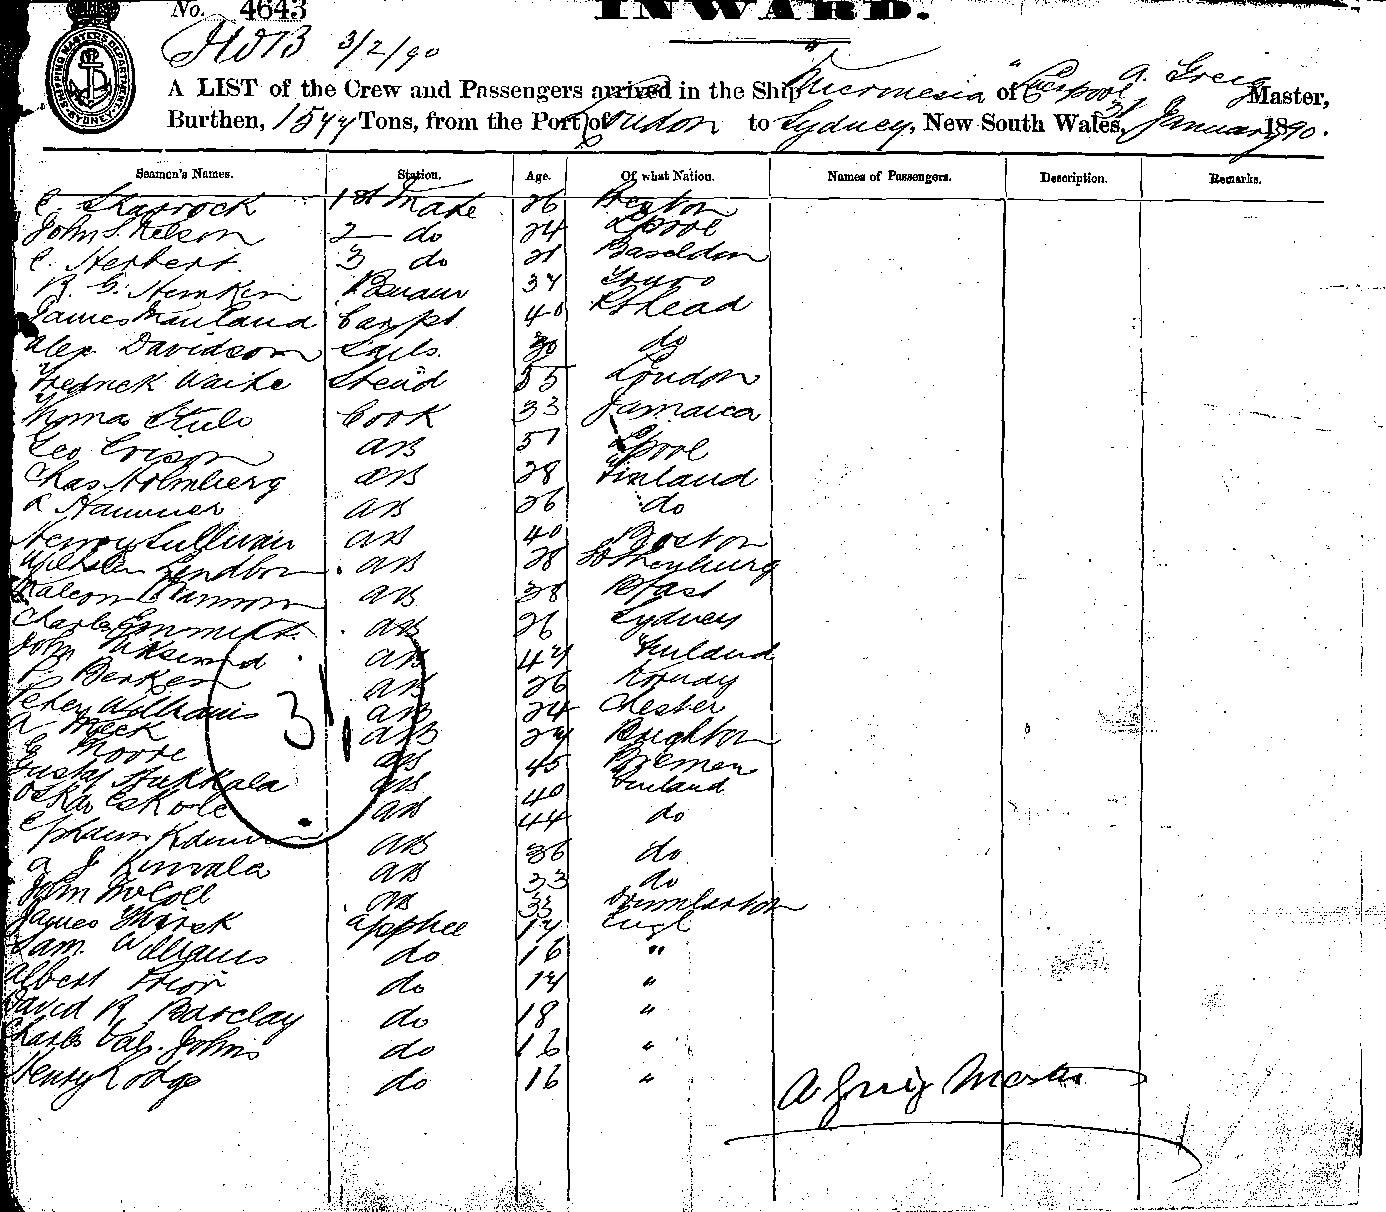 No. 4643
INWARD.
3/2/90
SHIPPING MASTERS DEPARTMENT SYDNEY
A LIST of the Crew and Passengers arrived in the Ship " of Liverpool A. Greig Master,
Burthen, 1544 Tons, from the Port of London to Sydney, New South Wales, 31 January 1890.
Seamen's Names. Station. Age. Of what Nation. Names of Passengers. Description. Remarks.
C. Sharrock 1st Mate 26 Preston
John S. Nelson 2 do 24 Lpool
C. Herbert. 3 do 21 Baseldon
R. G. 37 Truro
James 40 Pthead
Alex Davidson Sails. 30 do
Fredrick Waite Stewd 55 London
Thomas Cook 33 Jamaica
Geo AB 51 Lpool
Chas Holmberg AB 28 Finland
AB 26 do
Henry Sullivan AB 40 Boston
AB 28
Malcom AB 38 Bfast
Charles Emmett. AB 26 Sydney
John AB 47 Finland
P. AB 26
Peter Williams AB 24 Chester
A Meck AB 27 Brighton
G Moore AB 45 Bremen
Gustaf AB 40 Finland
Oskar Eskole AB 44 do
AB 36 do
A J AB 33 do
John McColl AB 33 Dumbarton
James apptice 17 Engl
Sam. Williams do 16 "
Albert Prior do 17 "
David R Barclay do 18 "
Charles Val. Johns do 16 "
Henry Lodge do 16 "
31
A Greig Master